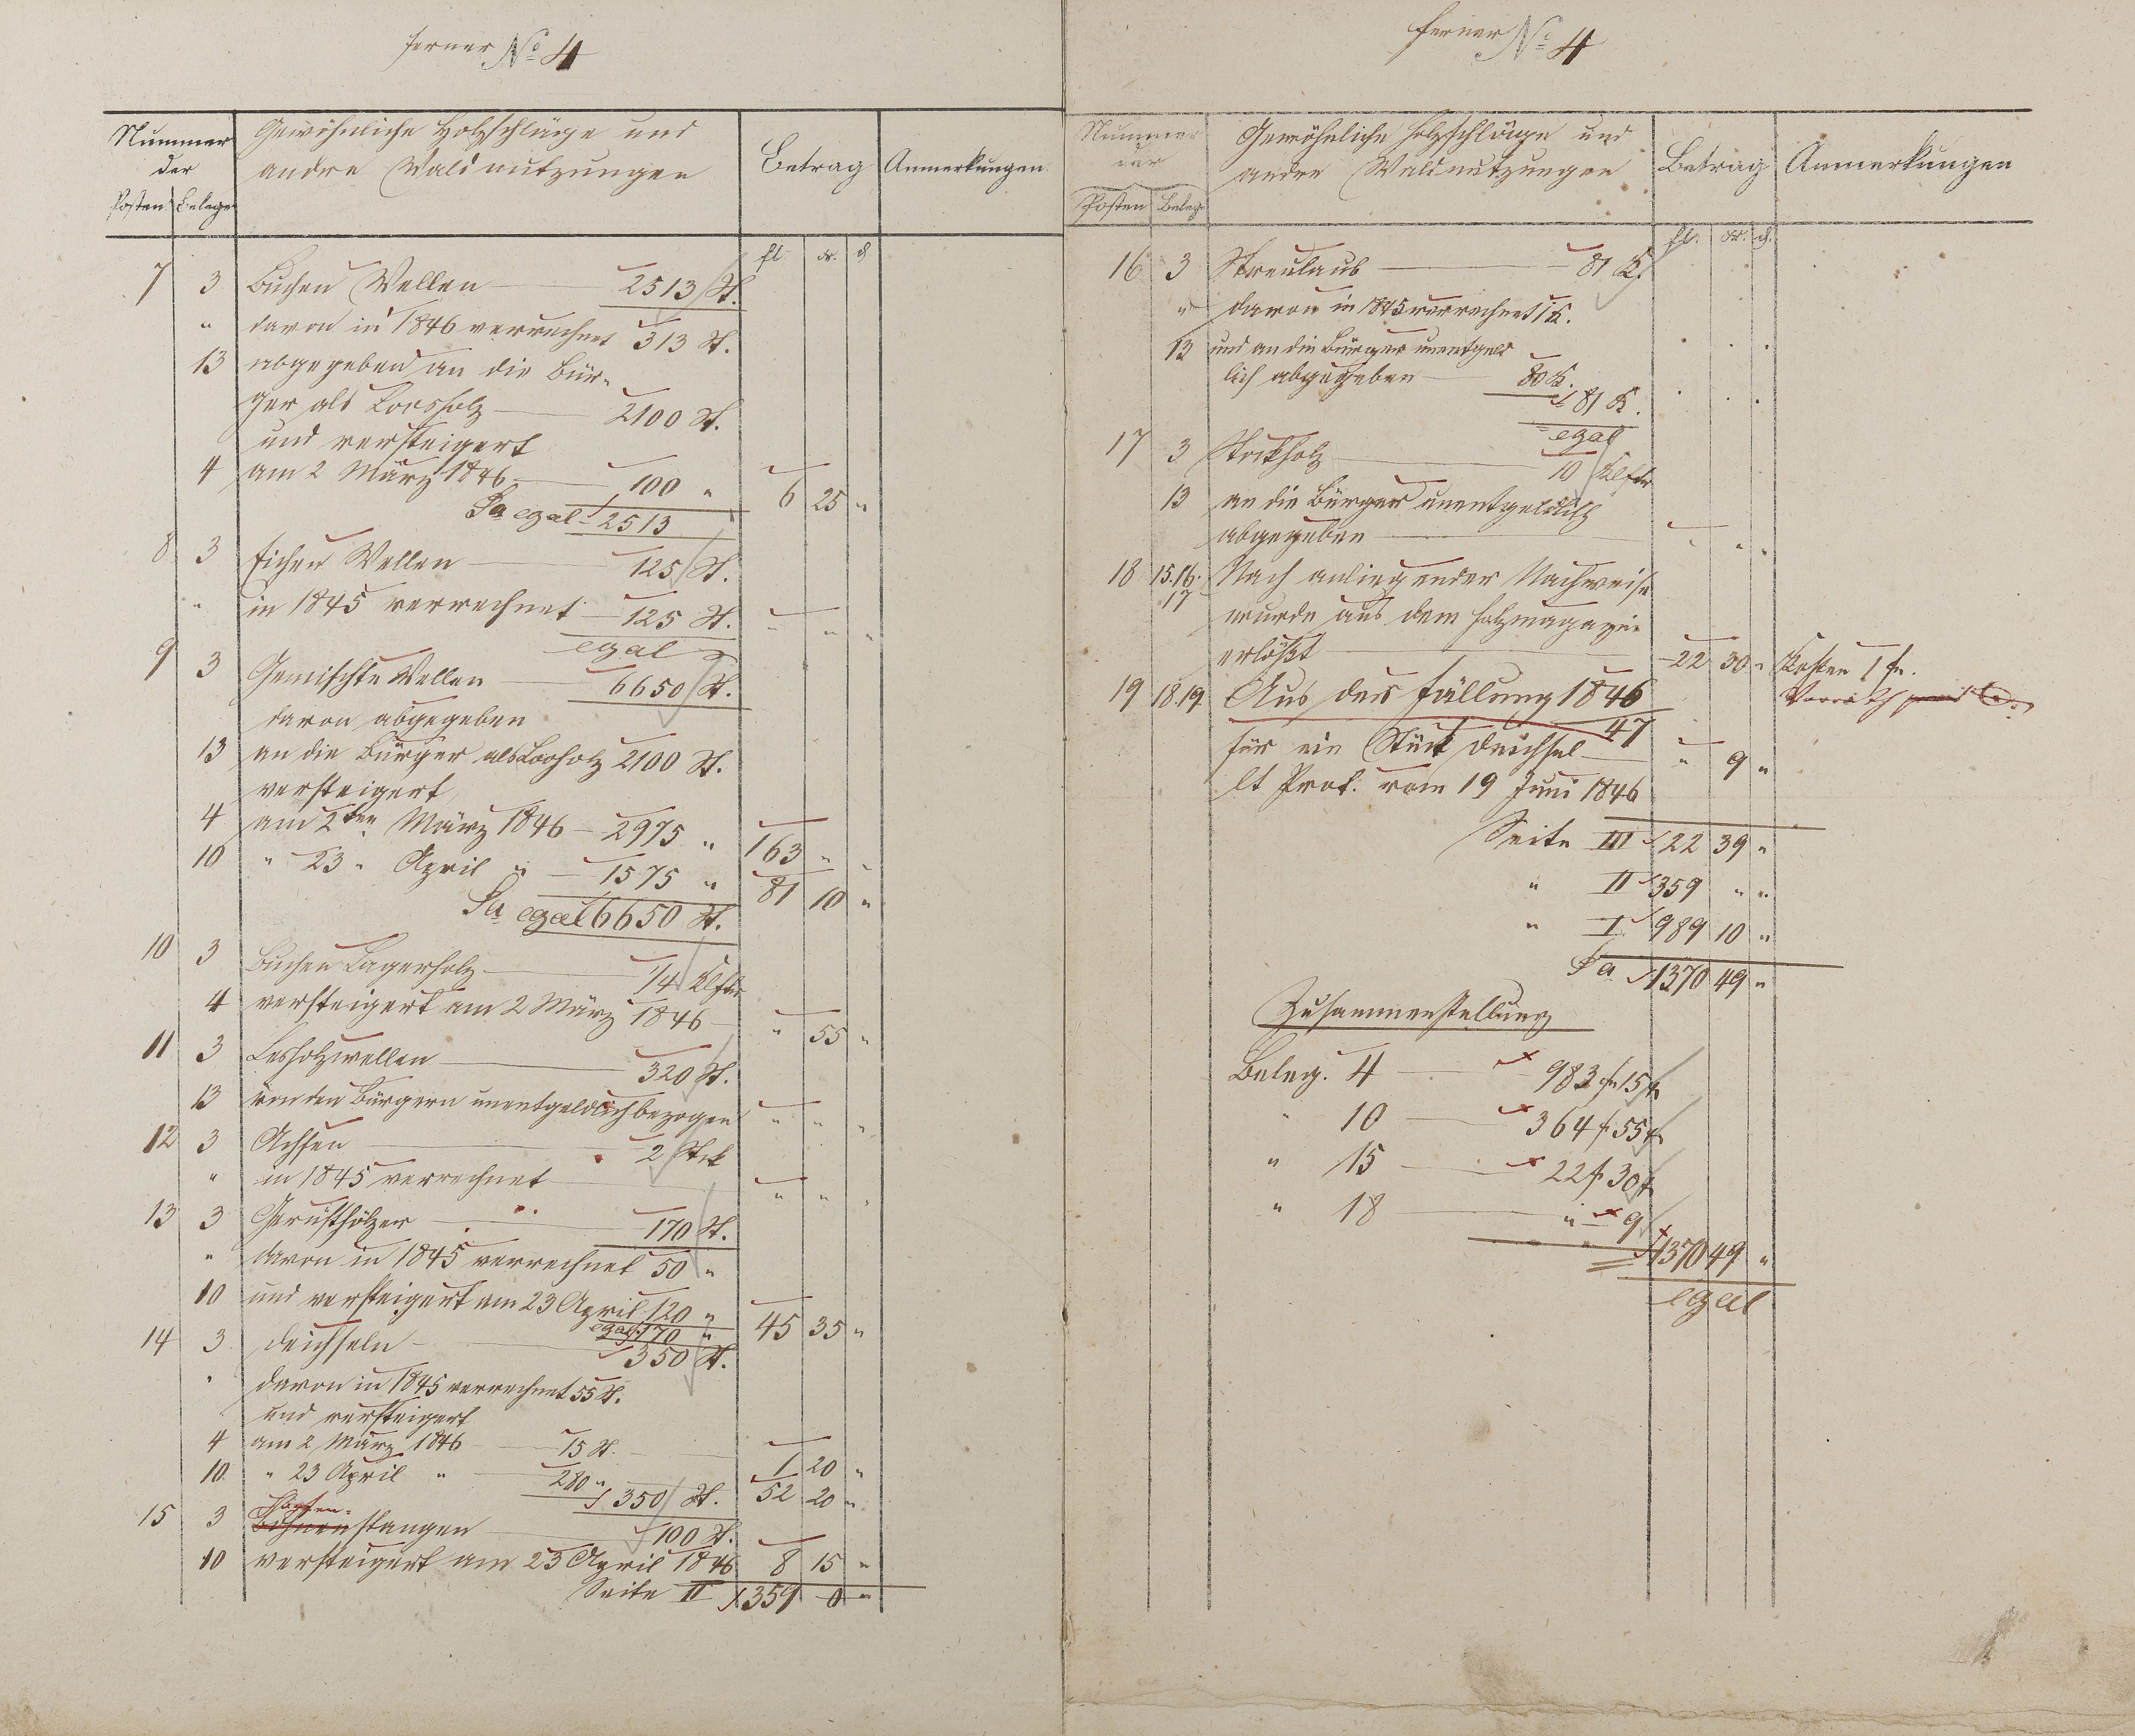 ferner No 4
Nummer
der
Posten Belege
Gewöhnliche Holzschläge und
andre Waldnutzungen
Betrag
Anmerkungen
fl. Kr. d
7 3 Buchen Wellen 2513 St.
" davon in 1846 verrechnet 313 St.
13 abgegeben an die Bür-
ger als Loosholz 2100 St.
und versteigert
4 am 2 März 1846 100 " 6 25 "
Sa egal 2513
8 3 Eichen Wellen 125 St.
" in 1845 verrechnet 125 St. " " "
egal
9 3 Gemischte Wellen 6650 St.
davon abgegeben
13 an die Bürger als Looholz 2100 St.
versteigert
4 am 2ten März 1846 2975 " 163 " "
10 " 23 " April " 1575 " 81 10 "
Sa egal 6650 St.
10 3 Buchen Lagerholz 1/4 Klftr
4 versteigert am 2 März 1846 " 55 "
11 3 Lesholzwellen 320 St.
13 von den Bürgern unentgeldlich bezogen " " "
12 3 Achsen 2 Stck
" in 1845 verrechnet " " "
13 3 Gerüsthölzer 170 St.
" davon in 1845 verrechnet 50 "
10 und versteigert am 23 April 120 " 45 35 "
egal 170 "
14 3 Deichseln 350 St.
" davon in 1845 verrechnet 55 St.
und versteigert
4 am 2 März 1846 15 St. 1 20 "
10 " 23 April " 280 " 52 20 "
350 St.
Hopfen-
15 3 Bohnenstangen 100 St.
10 versteigert am 23 April 1846 8 15 "
Seite II 359 0 "
ferner No 4
Nummer
der
Posten Belege
Gewöhnliche Holzschläge und
andre Waldnutzungen
Betrag
Anmerkungen
fl. Kr. d.
16 3 Streulaub 81 K.
" davon in 1845 verrechnet 1 K.
13 und an die Bürger unentgeld
lich abgegeben 80 K.
81 K.
egal
17 3 Stockholz 10 Klftr
13 an die Bürger unentgeldlich
abgegeben " " "
18 15.16. Nach anliegender Nachweise
17 wurde aus dem Holzmagazin
erlößt 22 30 " Kosten 1 fr.
Vorrath
19 18.19 Aus der Fällung 1846
47
für ein Stück Deichsel " 9 "
lt Prot. vom 19 Juni 1846
Seite III 22 39 "
" II 359 " "
" I 989 10 "
Sa 1370 49 "
Zusammenstellung
Beleg. 4 983 f 15 x
" 10 364 f 55 x
" 15 22 f 30 x
" 18 " 9
1370 49 "
egal